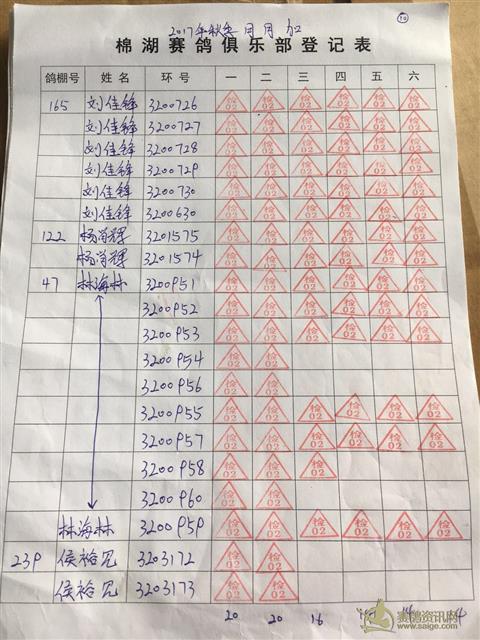 2017年秋冬 月 月 加
棉湖赛鸽俱乐部登记表
鸽棚号 姓名 环号 一 二 三 四 五 六
165 刘佳锋 3200726 检02 检02 检02 检02 检02 检02
刘佳锋 3200727 检02 检02 检02 检02 检02 检02
刘佳锋 3200728 检02 检02 检02 检02 检02 检02
刘佳锋 3200729 检02 检02 检02 检02 检02 检02
刘佳锋 3200730 检02 检02 检02 检02 检02 检02
刘佳锋 3200630 检02 检02 检02 检02 检02 检02
122 杨尚辉 3201575 检02 检02 检02 检02 检02 检02
杨尚辉 3201574 检02 检02 检02 检02 检02 检02
47 林海林 3200951 检02 检02 检02 检02 检02 检02
3200952 检02 检02 检02 检02 检02 检02
3200953 检02 检02 检02 检02 检02 检02
3200954 检02 检02
3200956 检02 检02
3200955 检02 检02 检02 检02 检02 检02
3200957 检02 检02 检02 检02 检02 检02
3200958 检02 检02 检02
3200960 检02 检02
林海林 3200959 检02 检02 检02 检02 检02 检02
239 侯裕冗 3203172 检02 检02
侯裕冗 3203173 检02 检02
20 20 16 14
赛鸽资讯网
www.saige.com